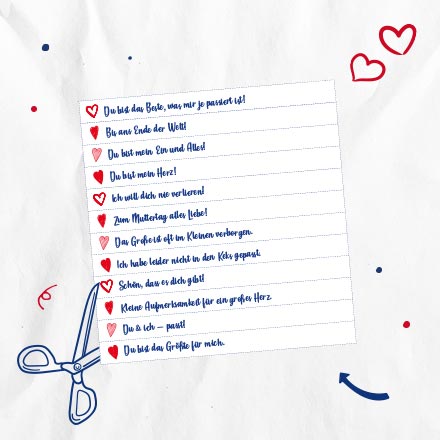 Du bist das Beste, was mir je passiert ist!
Bis ans Ende der Welt!
Du bist mein Ein und Alles!
Du bist mein Herz!
Ich will dich nie verlieren!
Zum Muttertag alles Liebe!
Das Große ist oft im Kleinen verborgen.
Ich habe leider nicht in den Keks gepasst.
Schön, dass es dich gibt!
Kleine Aufmerksamkeit für ein großes Herz
Du & ich – passt!
Du bist das Größte für mich.